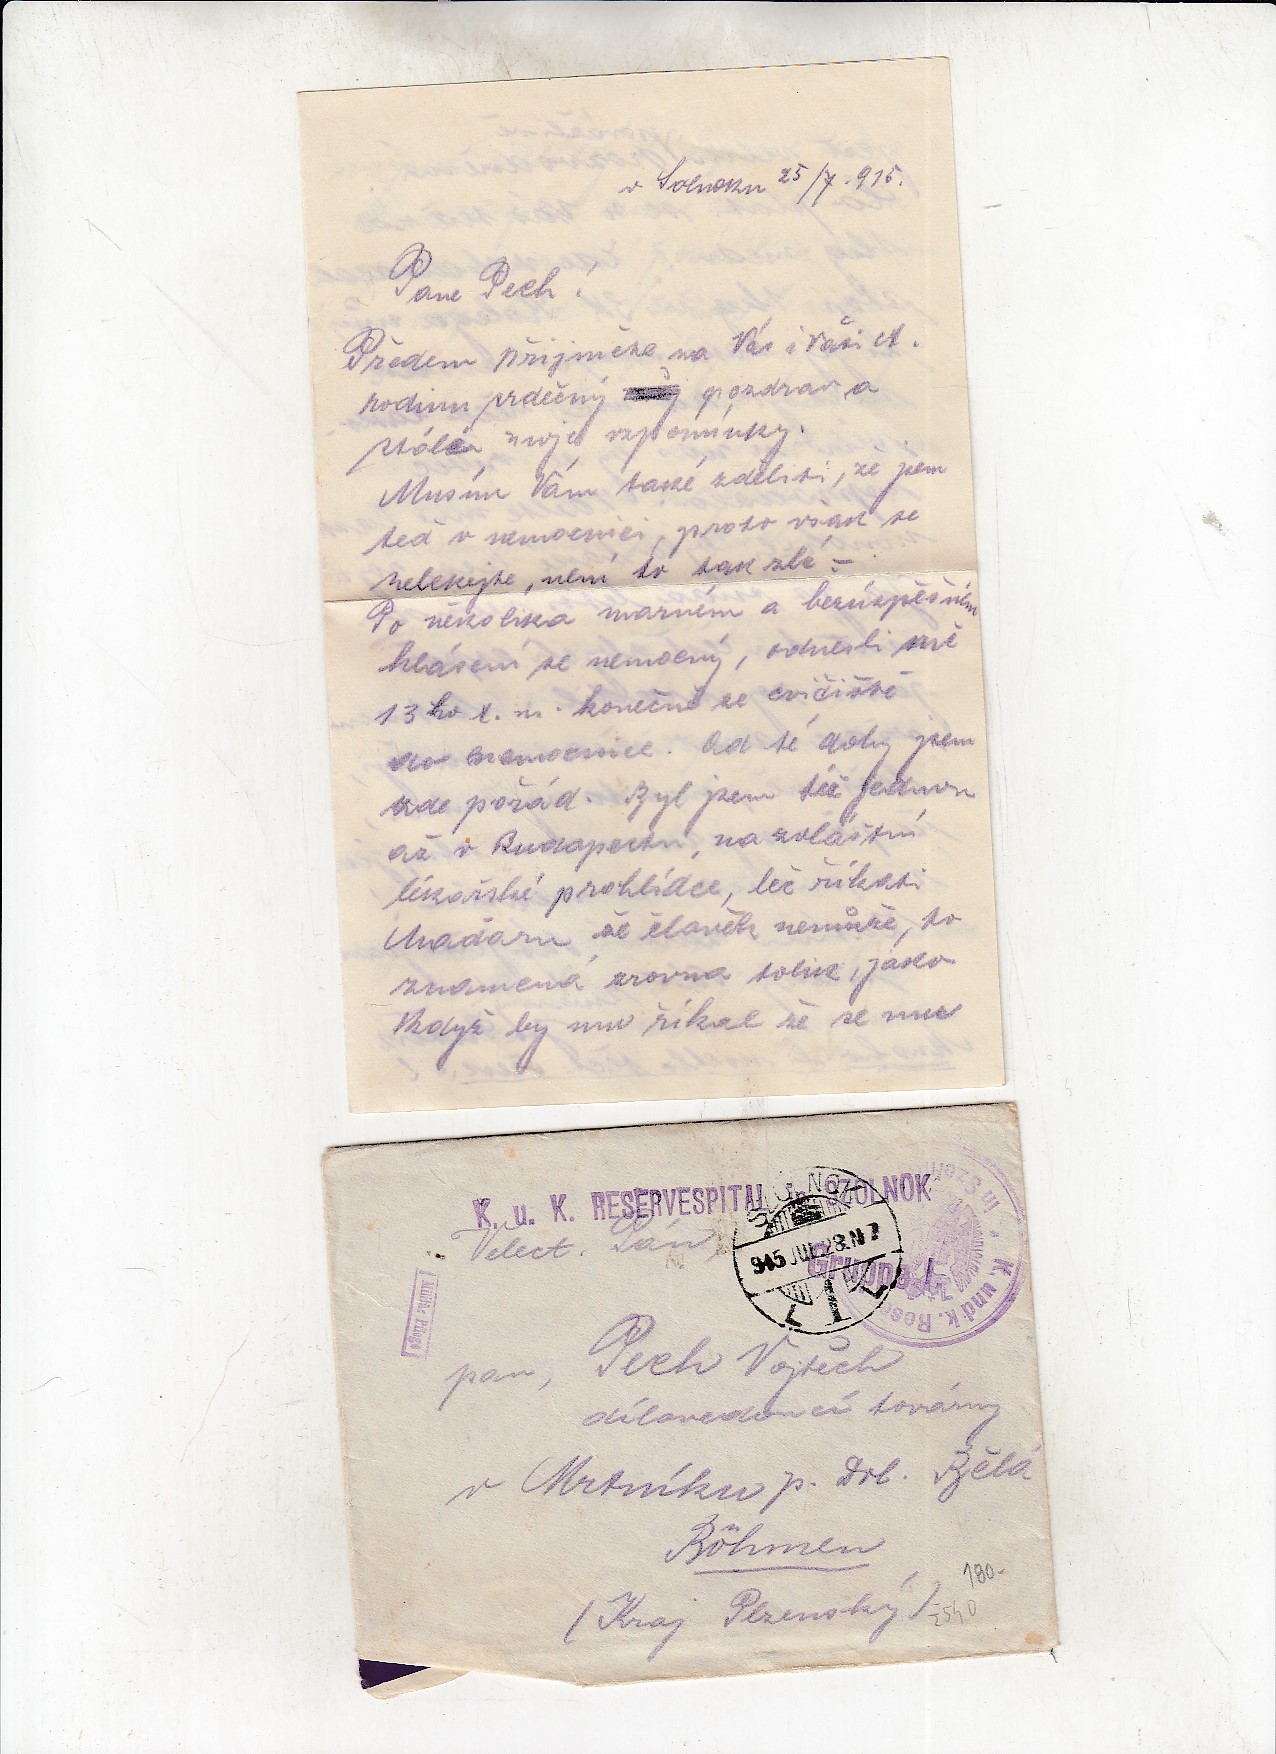 v Solnoku 25/7. 915.
Pane Pech!
Předem přijměte na Vás i Vaši ct.
rodinu srdečný pozdrav a
stálé moje vzpomínky.
Musím Vám také zděliti, že jsem
teď v nemocnici, proto však se
nelekejte, není to tak zlé. –
Po několika marném a bezúspěšném
hlásení se nemocný, odnesli mě
13ho t. m. konečně ze cvičiště
do nemocnice. Od té doby jsem
zde pořád. Byl jsem též jednou
až v Budapestu, na zvláštní
lékařské prohlídce, leč říkati
Maďaru že člověk nemůže, to
znamená zrovna tolik, jako
když by mu říkal že se mu
K. u. K. RESERVESPITAL SZOLNOK
Velect. Pán,
SZOLNOK
915 JUL 28. N 7
1
Gruppe I.
K. und k. Rese in Szoln
Militär Pflege
pan, Pech Vojtěch
dílovedoucí továrny
v Mrtníku p. Dol. Bělá
Böhmen
(Kraj Plzenský)
180-